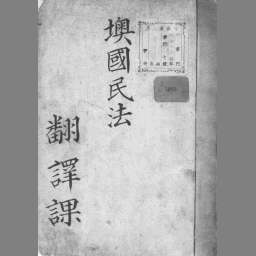 墺國民法
翻譯課